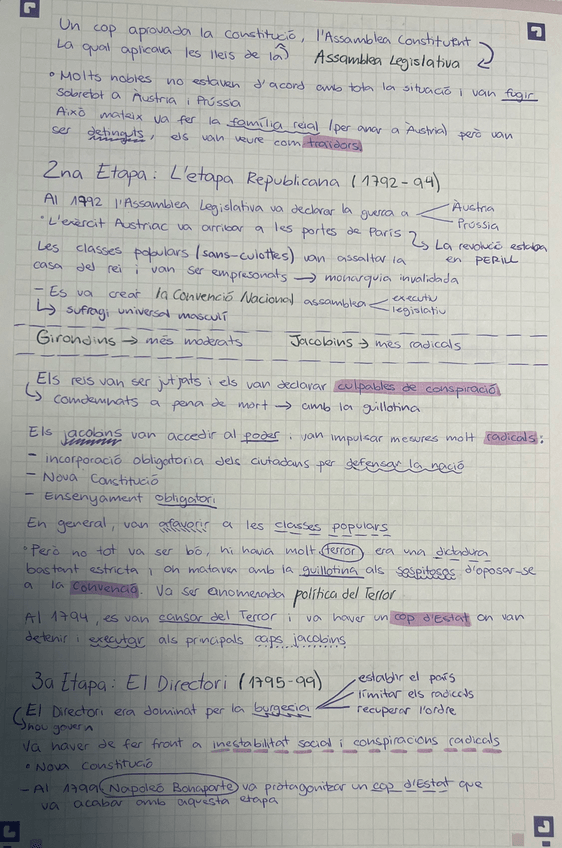 Un cop aprovada la constitució, l'Assemblea Constituent
La qual aplicava les lleis de la^ Assemblea Legislativa
• Molts nobles no estaven d'acord amb tota la situació i van fugir
sobretot a Àustria i Prússia
Això mateix va fer la família reial (per anar a Àustria) però van
ser detinguts, els van veure com traïdors
2na Etapa: L'etapa Republicana (1792-94)
Al 1792 l'Assemblea Legislativa va declarar la guerra a Àustria
Prússia
• L'exèrcit Austriac va arribar a les portes de París → La revolució estaba
en PERILL
Les classes populars (sans-culottes) van assaltar la
casa del rei i van ser empresonats → monarquia invalidada
- Es va crear la Convenció Nacional assemblea executiu
legislatiu
↳ sufragi universal masculí
Girondins → més moderats Jacobins → més radicals
Els reis van ser jutjats i els van declarar culpables de conspiració
↳ comdemnats a pena de mort → amb la guillotina
Els jacobins van accedir al poder i van impulsar mesures molt radicals:
- Incorporació obligatoria dels ciutadans per defensar la nació
- Nova Constitució
- Ensenyament obligatori
En general, van afavorir a les classes populars
• Però no tot va ser bó, hi havia molt terror era una dictadura
bastant estricta i on mataven amb la guillotina als sospitosos d'oposar-se
a la Convenció. Va ser anomenada política del Terror
Al 1794, es van cansar del Terror i va haver un cop d'Estat on van
detenir i executar als principals caps jacobins
3a Etapa: El Directori (1795-99) establir el país
limitar els radicals
El Directori era dominat per la burgesia recuperar l'ordre
↳ nou govern
Va haver de fer front a inestabilitat social i conspiracions radicals
• Nova constitució
- Al 1799 Napoleó Bonaparte va protagonitzar un cop d'Estat que
va acabar amb aquesta etapa